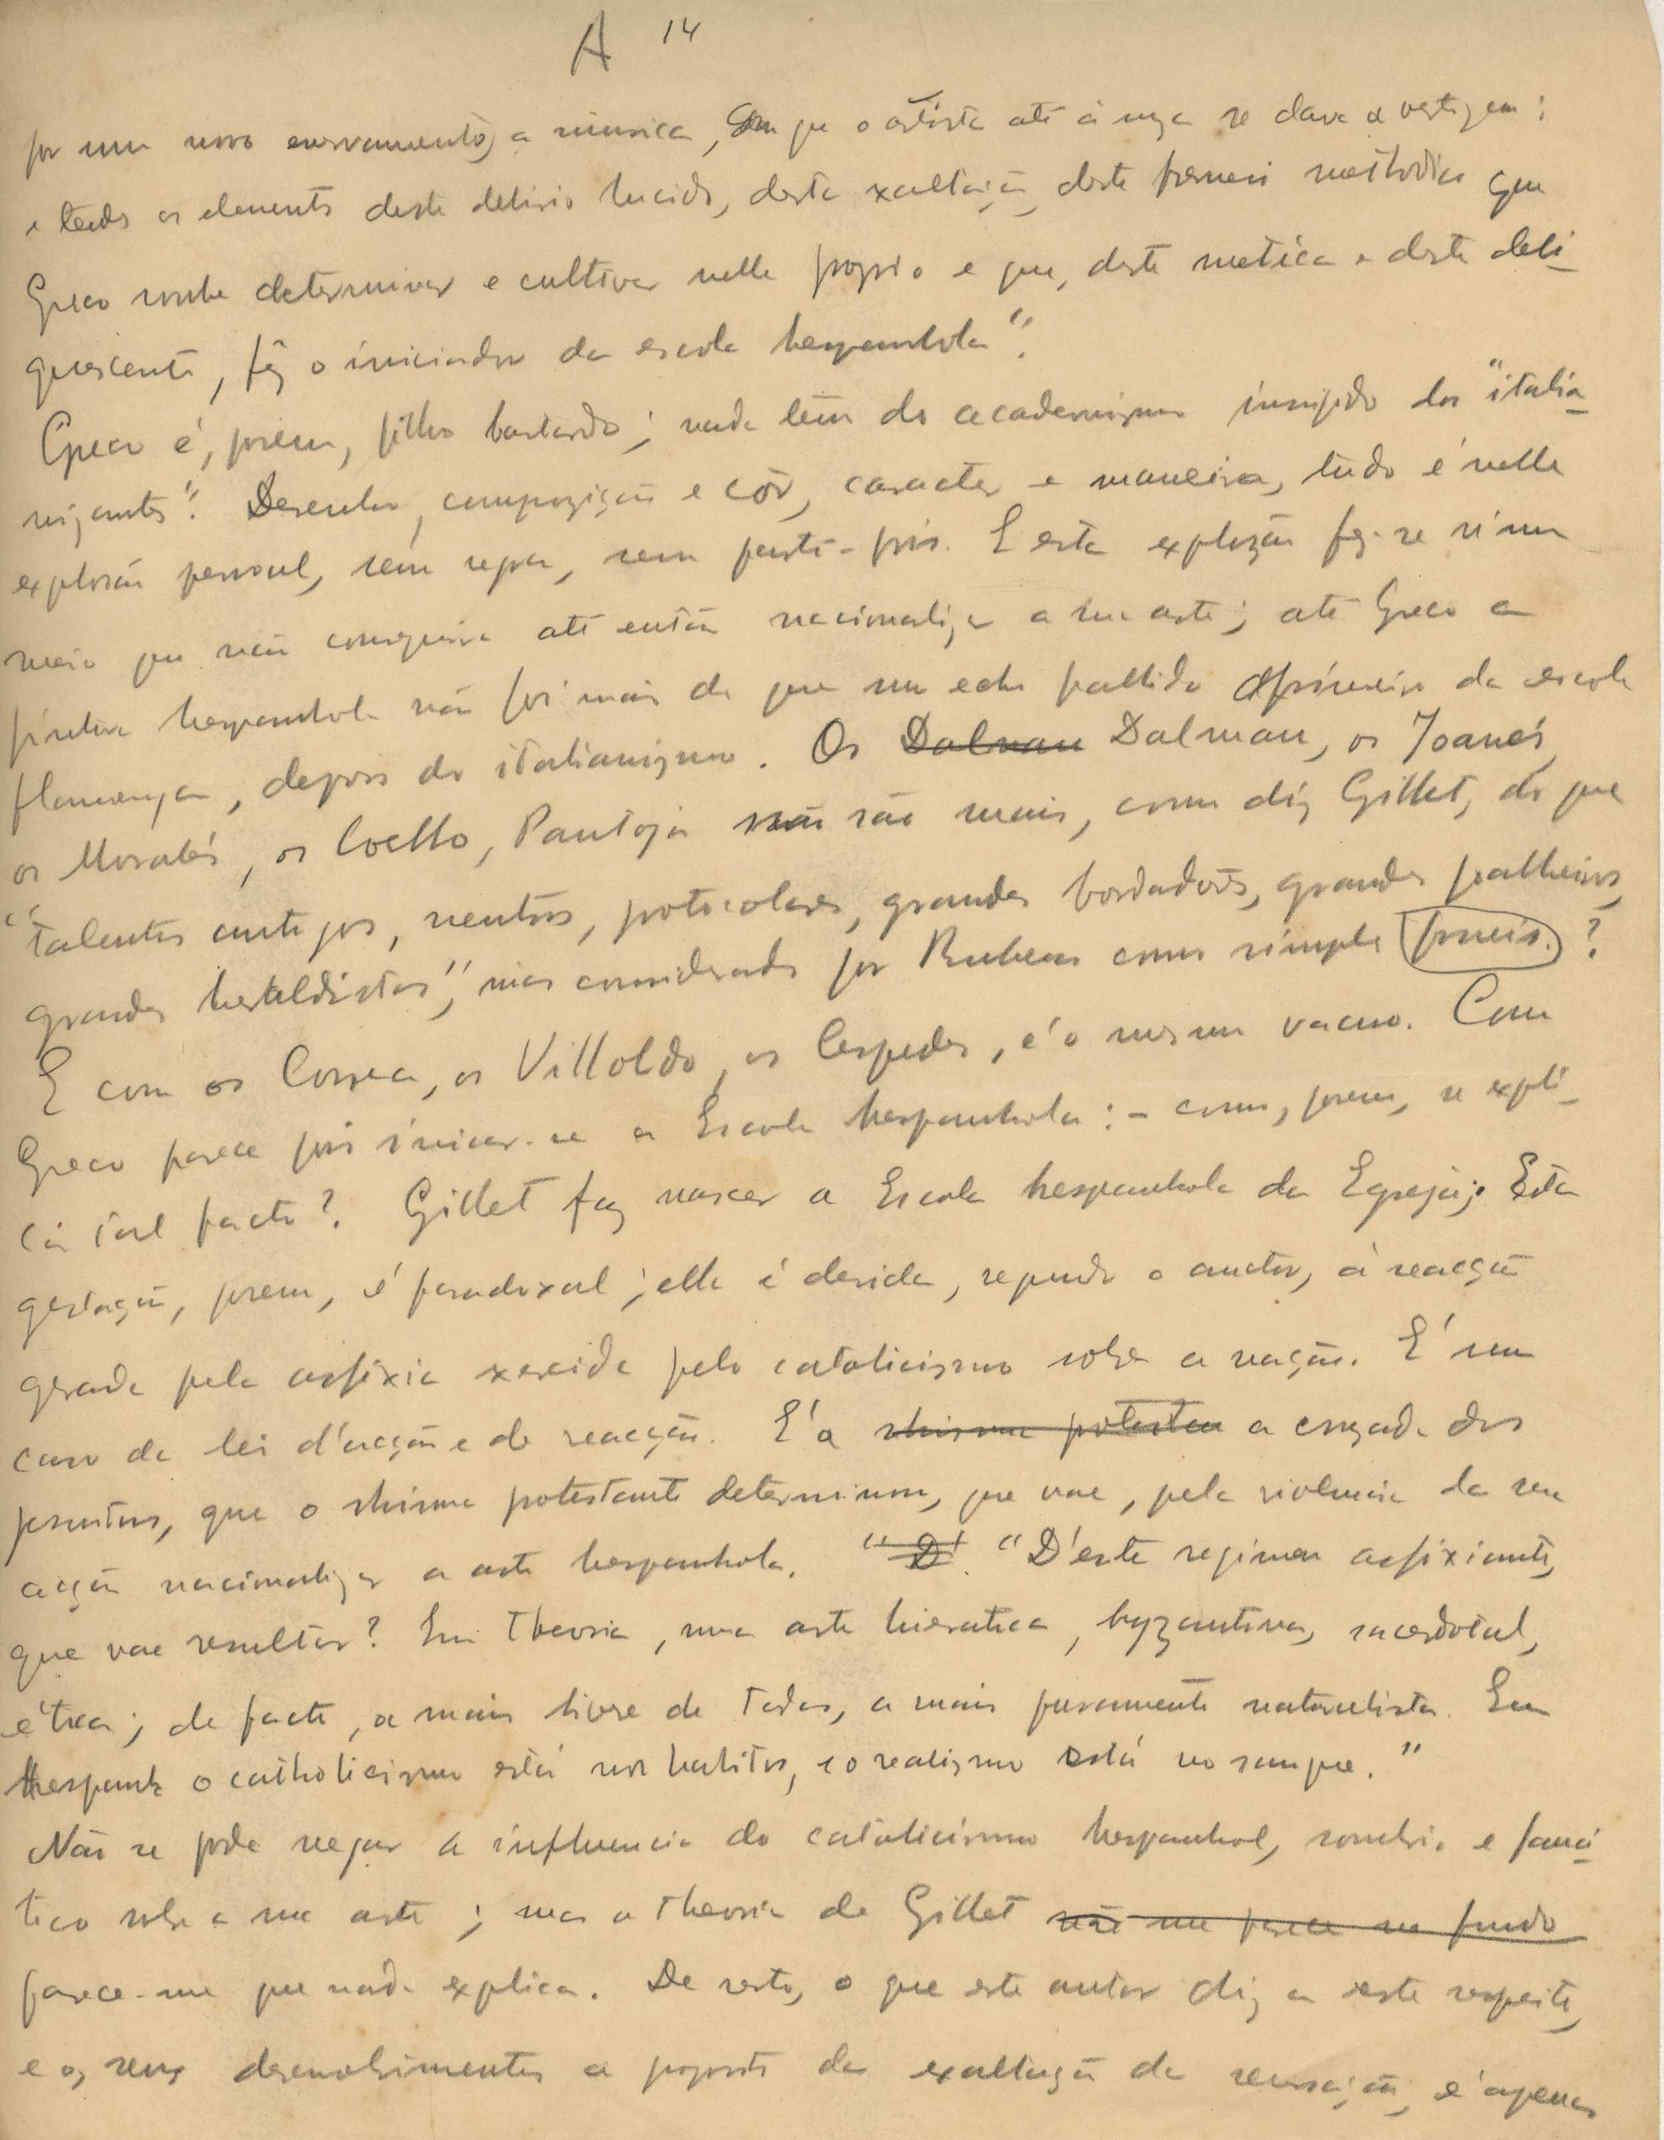 A 14
por um novo enervamento, a musica, em que o artista até á nuca se dava a vertigem;
e todos os elementos deste delirio lucido, desta exaltação, deste frenesi methodico que
Greco soube determinar e cultivar nelle proprio e que, deste metéca e deste deli-
quescente, fêz o iniciador da escola hespanhola".
Greco é, porem, filho bastardo; nada têm do academismo insuflado dos "italia-
nizantes". Desenho, composição e côr, caracter e maneira, tudo é nelle
explosão pessoal, sem regra, sem parti-pris. E esta explozão fez-se n'um
meio que não conseguira até então nacionalizar a sua arte; até Greco a
pintura hespanhola não foi mais do que um echo pallido primeiro da escola
flamenga, depois do italianismo. Os Dalmau Dalmau, os Joanés,
os Moralés, os Coello, Pantoja não são mais, como diz Gillet, do que
"talentos antigos, neutros, protocolares, grandes bordadores, grandes
grandes heraldistas", mas considerados por Rubens como simples ?
E com os Correa, os Villoldo, os Cespedes, é o mesmo vacuo. Com
Greco parece pois iniciar-se a Escola hespanhola: - como, porem, se expli-
ca tal facto? Gillet faz nascer a Escola hespanhola da Egreja; Esta
gestação, porem, é paradoxal; ella é devida, segundo o auctor, á reacção
gerada pela asfixia exercida pelo catolicismo sobre a nação. E' um
caso da lei d'acção e de reacção. E' a shisma protestan a cruzada dos
jesuitas, que o shisma protestante determinou, que vae, pela violencia da sua
acção nacionalizar a arte hespanhola. "D' "D'este regimen asfixiante,
que vae resultar? Em theoria, uma arte hieratica, byzantina, sacerdotal,
; de facto, a mais livre de todas, a mais puramente naturalista. Em
Hespanha o catholicismo está nos habitos, e o realismo está no sangue."
Não se pode negar a influencia do catolicismo hespanhol, sombrio e faná-
tico sobre a sua arte; mas a theoria de Gillet não me parece no fundo
parece-me que nada explica. De resto, o que este autor diz a este respeito,
e os seus desenvolvimentos a proposito da exaltação da sensação, é apenas